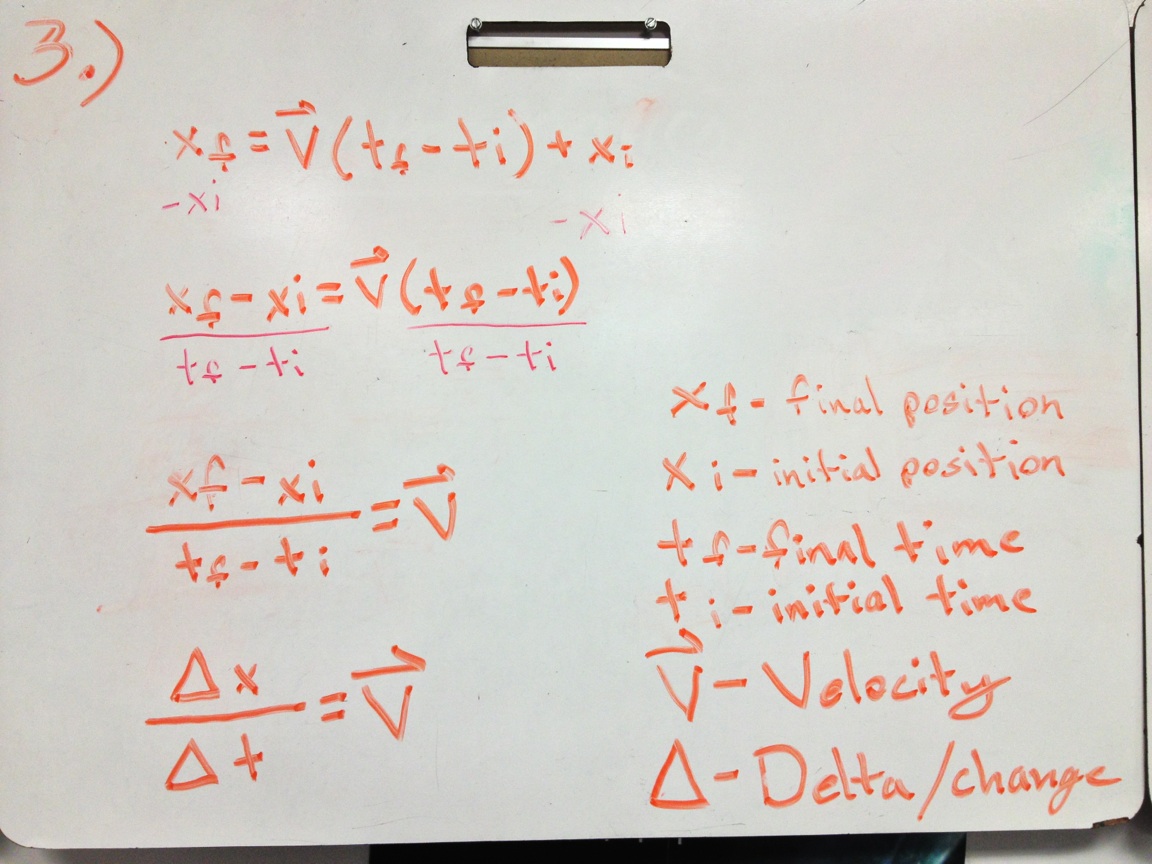 3.)
xf = V⃗(tf - ti) + xi
-xi -xi
xf - xi = V⃗(tf - ti)
tf - ti tf - ti
xf - xi = V⃗
tf - ti
Δx = V⃗
Δt
xf - final position
xi - initial position
tf - final time
ti - initial time
V⃗ - Velocity
Δ - Delta/change